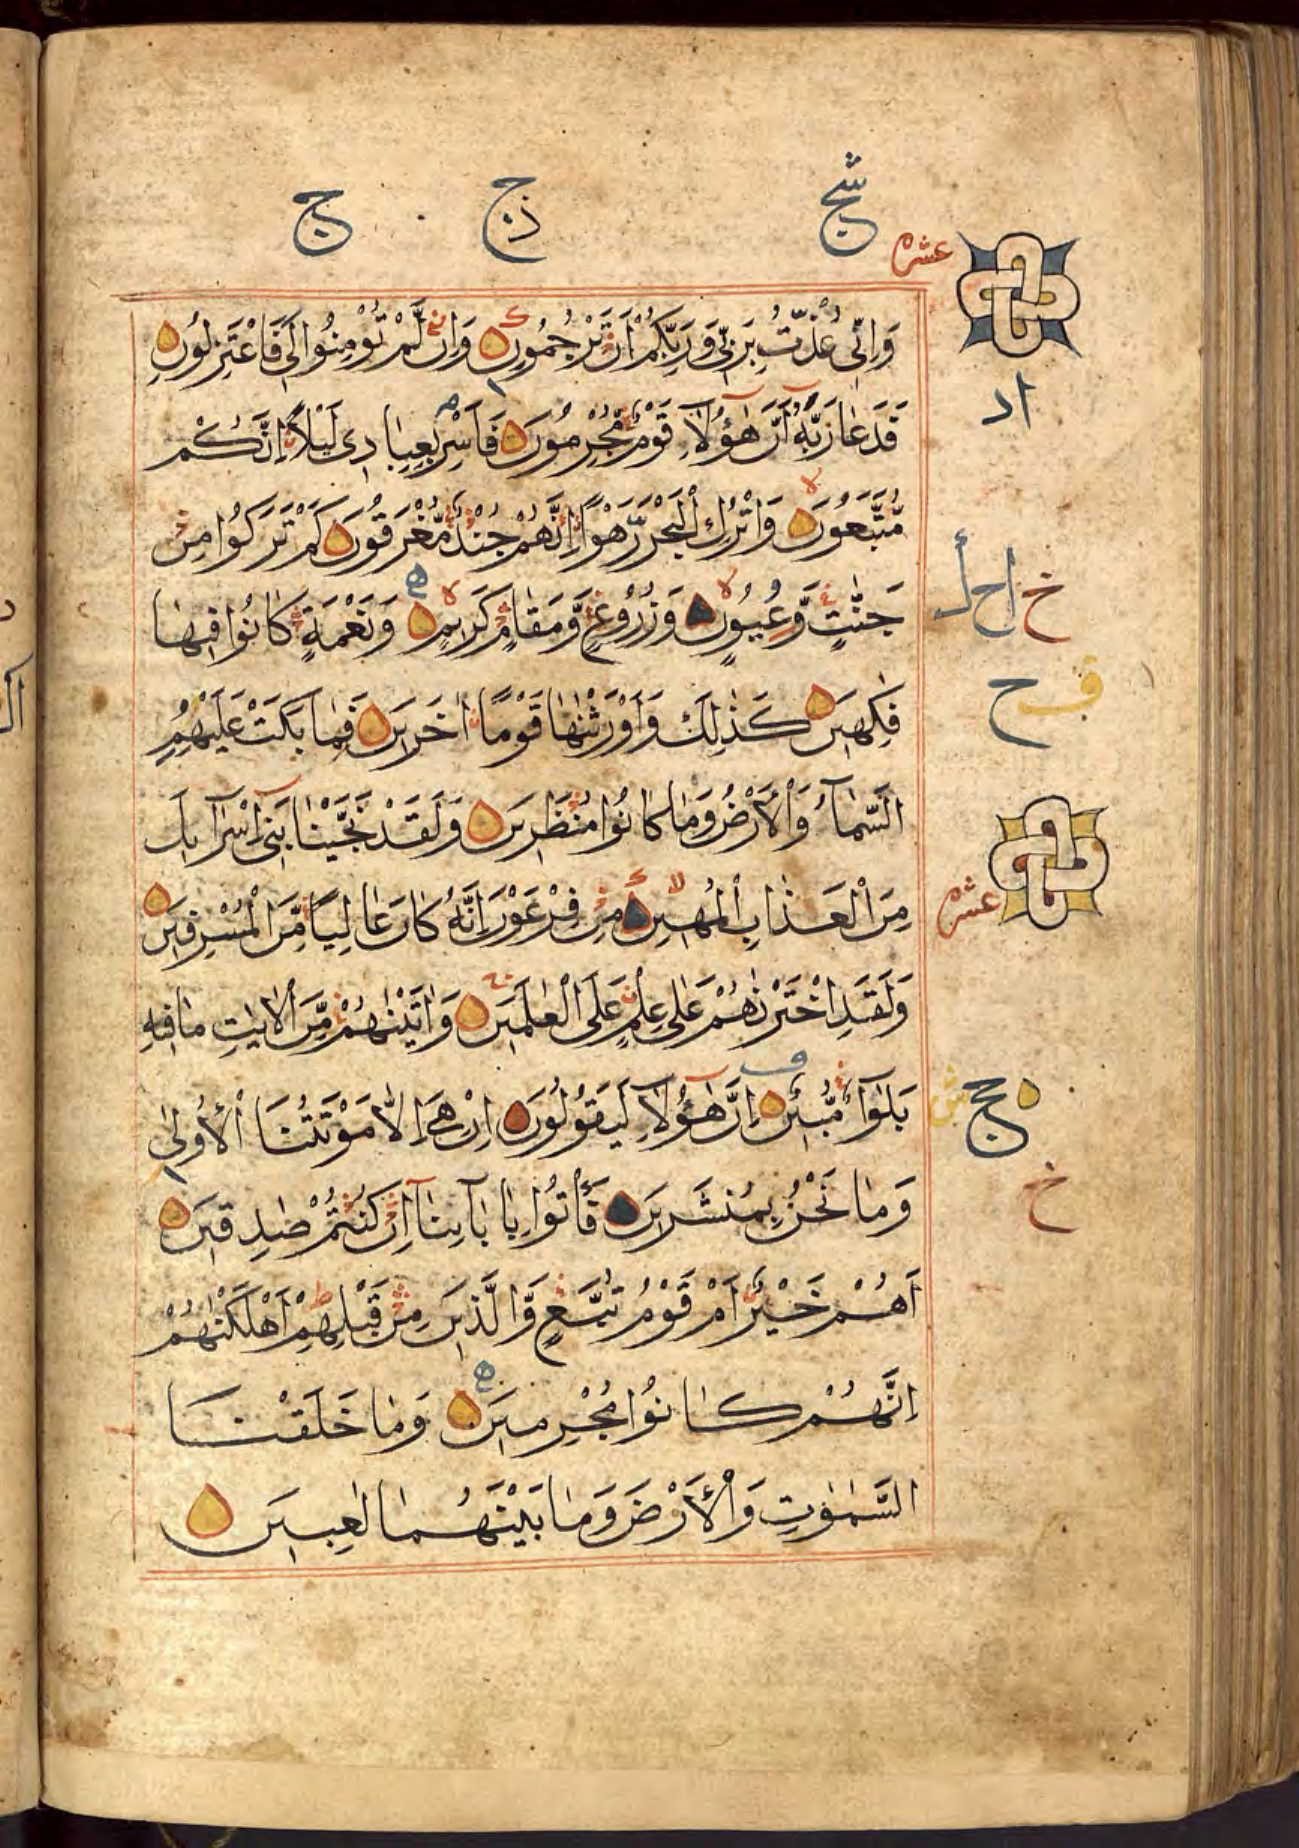 شج
ذج
ج
عشره
وَاِنِّى عُذْتُ بِرَبِّى وَرَبِّكُمْ اَنْ تَرْجُمُونِ وَاِنْ لَّمْ تُؤْمِنُوا لِى فَاعْتَزِلُونِ
فَدَعَا رَبَّهُ اَنَّ هٰٓؤُلَآءِ قَوْمٌ مُّجْرِمُونَ فَاَسْرِ بِعِبَادِى لَيْلًا اِنَّكُمْ
مُّتَّبَعُونَ وَاتْرُكِ الْبَحْرَ رَهْوًا اِنَّهُمْ جُنْدٌ مُّغْرَقُونَ كَمْ تَرَكُوا مِنْ
جَنّٰتٍ وَّعُيُونٍ وَزُرُوعٍ وَّمَقَامٍ كَرِيمٍ وَنَعْمَةٍ كَانُوا فِيهَا
فٰكِهِينَ كَذٰلِكَ وَاَوْرَثْنٰهَا قَوْمًا اٰخَرِينَ فَمَا بَكَتْ عَلَيْهِمُ
السَّمَآءُ وَالْاَرْضُ وَمَا كَانُوا مُنْظَرِينَ وَلَقَدْ نَجَّيْنَا بَنِىٓ اِسْرَآءِيلَ
مِنَ الْعَذَابِ الْمُهِينِ مِنْ فِرْعَوْنَ اِنَّهُ كَانَ عَالِيًا مِّنَ الْمُسْرِفِينَ
عشره
وَلَقَدِ اخْتَرْنٰهُمْ عَلٰى عِلْمٍ عَلَى الْعٰلَمِينَ وَاٰتَيْنٰهُمْ مِّنَ الْاٰيٰتِ مَا فِيهِ
بَلٰٓؤٌا مُّبِينٌ اِنَّ هٰٓؤُلَآءِ لَيَقُولُونَ اِنْ هِىَ اِلَّا مَوْتَتُنَا الْاُولٰى
وَمَا نَحْنُ بِمُنْشَرِينَ فَاْتُوا بِاٰبَآئِنَآ اِنْ كُنْتُمْ صٰدِقِينَ
اَهُمْ خَيْرٌ اَمْ قَوْمُ تُبَّعٍ وَّالَّذِينَ مِنْ قَبْلِهِمْ اَهْلَكْنٰهُمْ
اِنَّهُمْ كَانُوا مُجْرِمِينَ وَمَا خَلَقْنَا
السَّمٰوٰتِ وَالْاَرْضَ وَمَا بَيْنَهُمَا لٰعِبِينَ